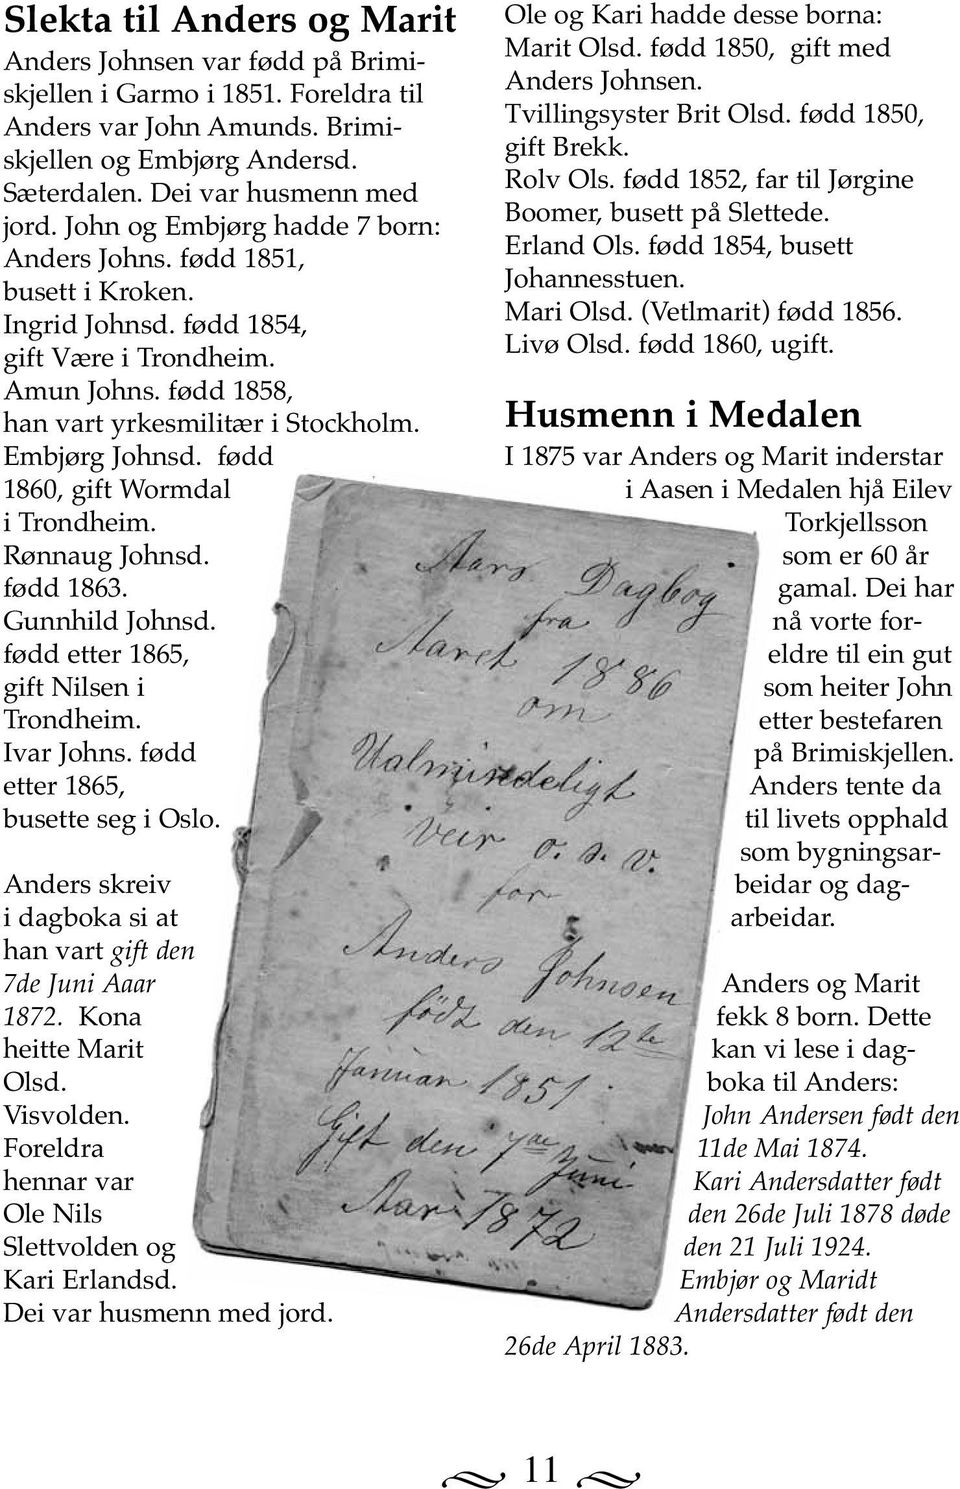 Slekta til Anders og Marit
Anders Johnsen var fødd på Brimi-
skjellen i Garmo i 1851. Foreldra til
Anders var John Amunds. Brimi-
skjellen og Embjørg Andersd.
Sæterdalen. Dei var husmenn med
jord. John og Embjørg hadde 7 born:
Anders Johns. fødd 1851,
busett i Kroken.
Ingrid Johnsd. fødd 1854,
gift Være i Trondheim.
Amun Johns. fødd 1858,
han vart yrkesmilitær i Stockholm.
Embjørg Johnsd. fødd
1860, gift Wormdal
i Trondheim.
Rønnaug Johnsd.
fødd 1863.
Gunnhild Johnsd.
fødd etter 1865,
gift Nilsen i
Trondheim.
Ivar Johns. fødd
etter 1865,
busette seg i Oslo.
Anders skreiv
i dagboka si at
han vart gift den
7de Juni Aaar
1872. Kona
heitte Marit
Olsd.
Visvolden.
Foreldra
hennar var
Ole Nils
Slettvolden og
Kari Erlandsd.
Dei var husmenn med jord.
Aars Dagbog
fra
Aaret 1886
om
Ualmindeligt
veir o. s. v.
for
Anders Johnsen
födt den 12te
Januar 1851.
Gift den 7de Juni
Aar 1872
Ole og Kari hadde desse borna:
Marit Olsd. fødd 1850, gift med
Anders Johnsen.
Tvillingsyster Brit Olsd. fødd 1850,
gift Brekk.
Rolv Ols. fødd 1852, far til Jørgine
Boomer, busett på Slettede.
Erland Ols. fødd 1854, busett
Johannesstuen.
Mari Olsd. (Vetlmarit) fødd 1856.
Livø Olsd. fødd 1860, ugift.
Husmenn i Medalen
I 1875 var Anders og Marit inderstar
i Aasen i Medalen hjå Eilev
Torkjellsson
som er 60 år
gamal. Dei har
nå vorte for-
eldre til ein gut
som heiter John
etter bestefaren
på Brimiskjellen.
Anders tente da
til livets opphald
som bygningsar-
beidar og dag-
arbeidar.
Anders og Marit
fekk 8 born. Dette
kan vi lese i dag-
boka til Anders:
John Andersen født den
11de Mai 1874.
Kari Andersdatter født
den 26de Juli 1878 døde
den 21 Juli 1924.
Embjør og Maridt
Andersdatter født den
26de April 1883.
11